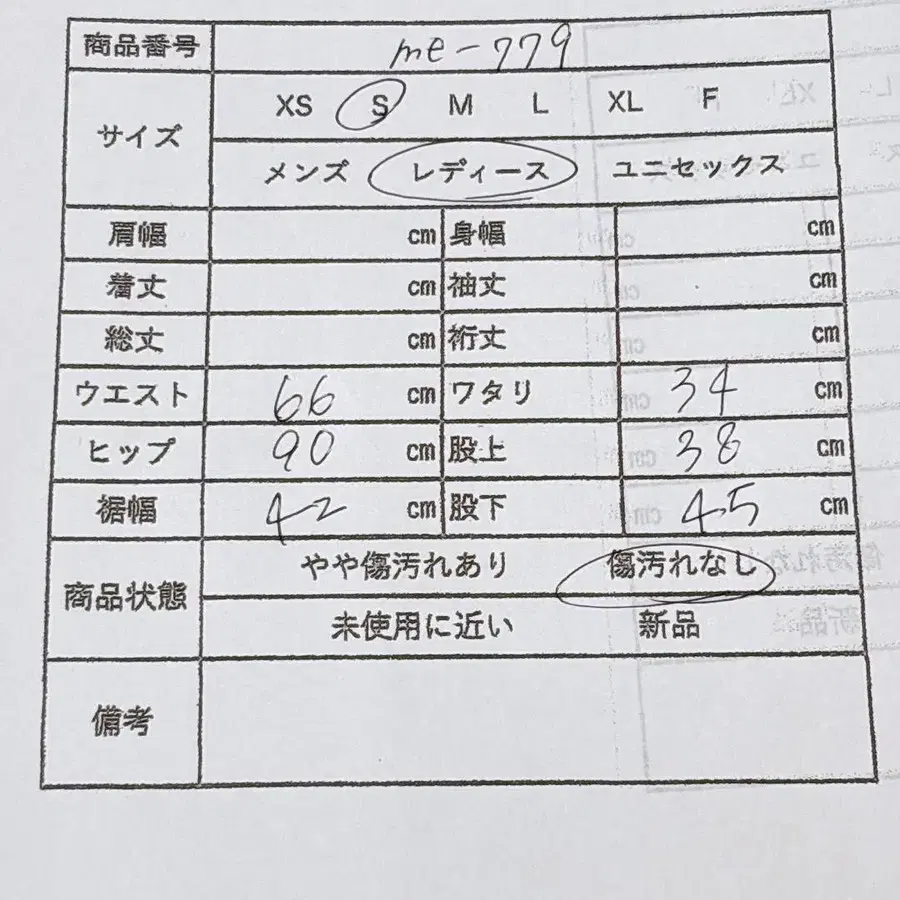 商品番号 me-779
サイズ XS S M L XL F
メンズ レディース ユニセックス
肩幅 cm 身幅 cm
着丈 cm 袖丈 cm
総丈 cm 裄丈 cm
ウエスト 66 cm ワタリ 34 cm
ヒップ 90 cm 股上 38 cm
裾幅 42 cm 股下 45 cm
商品状態 やや傷汚れあり 傷汚れなし
未使用に近い 新品
備考